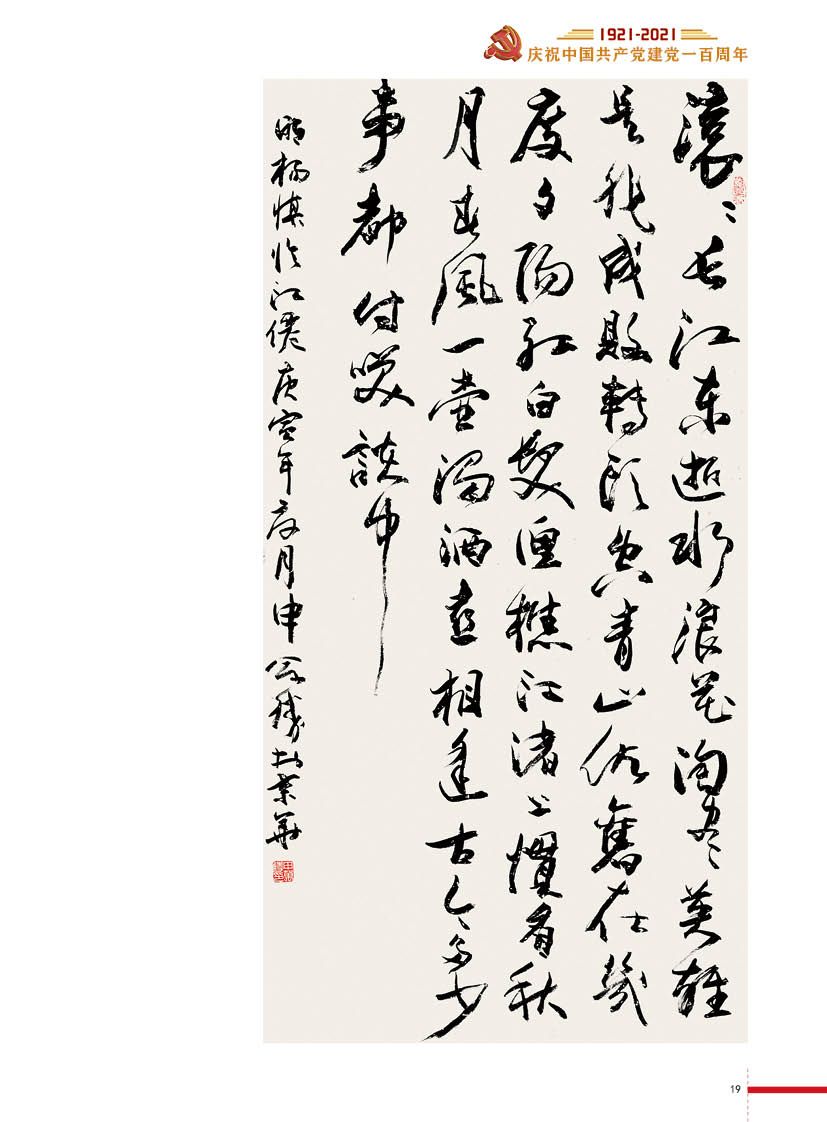 1921-2021
庆祝中国共产党建党一百周年
滚滚长江东逝水浪花淘尽英雄
是非成敗轉头空青山依舊在幾
度夕陽红白髮漁樵江渚上慣看秋
月春風一壶濁酒喜相逢古今多少
事都付笑談中
明杨慎临江仙庚寅年六月申
19